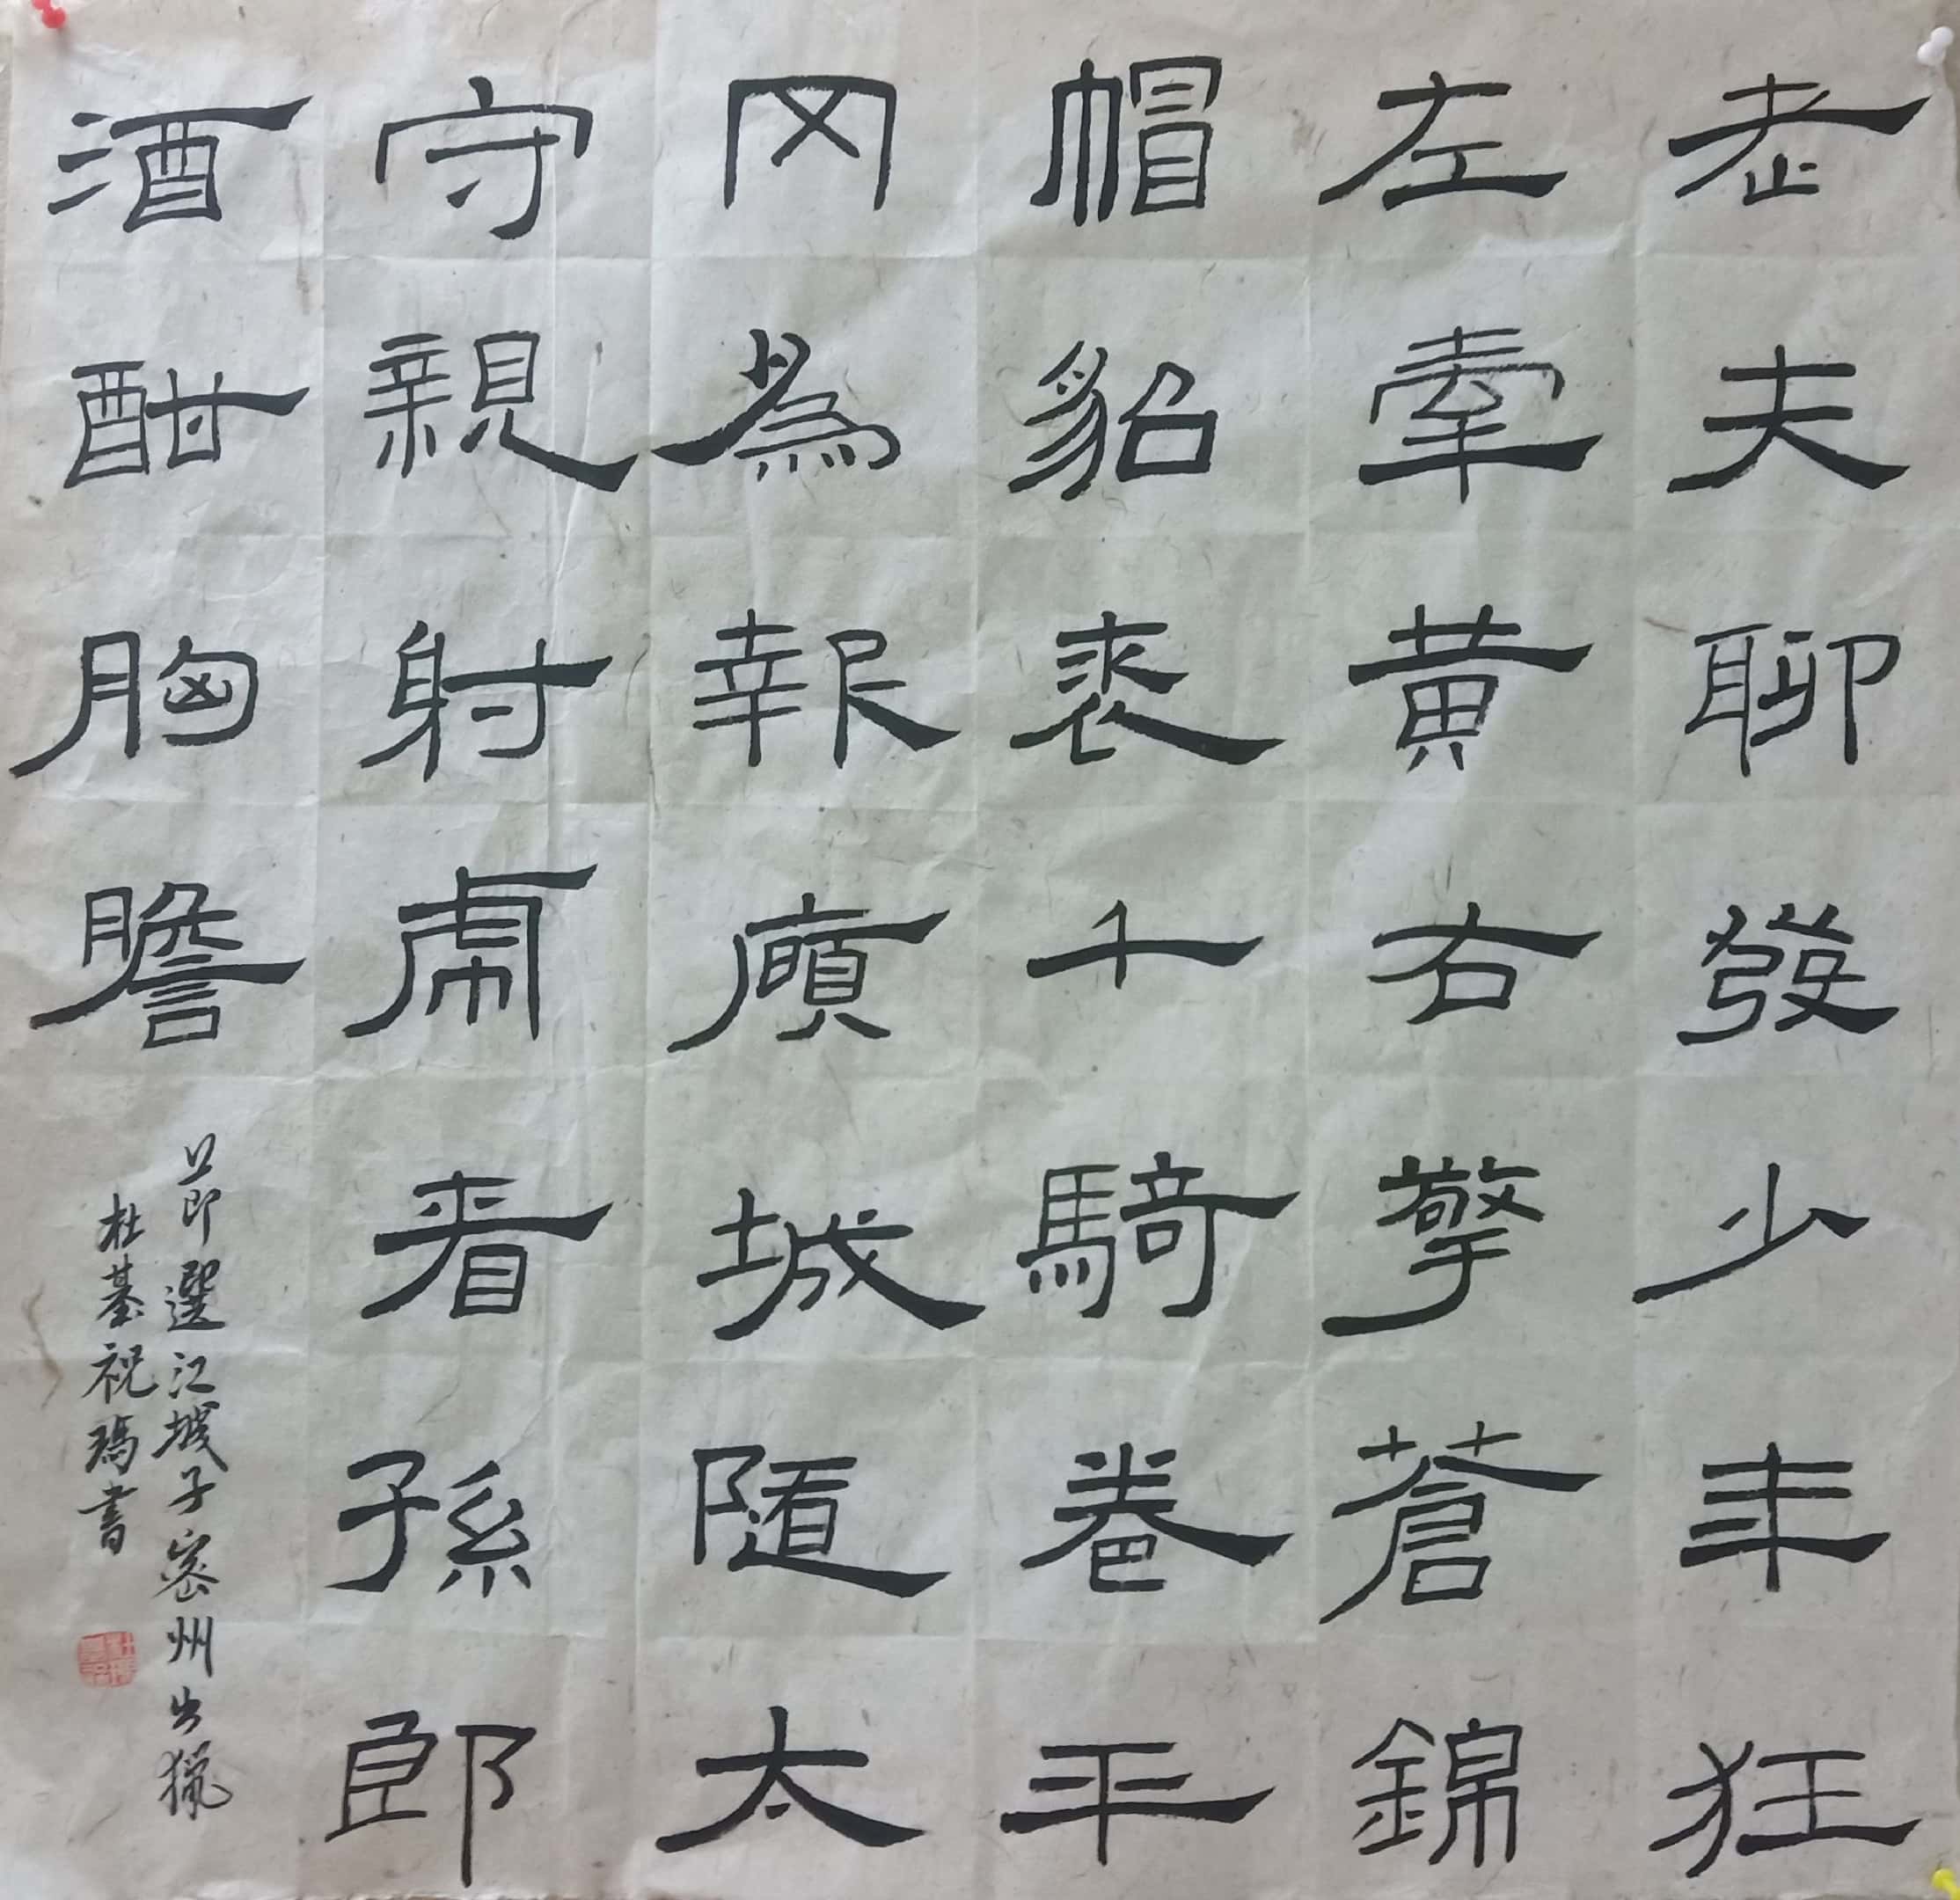 老夫聊發少年狂
左牽黃右擎蒼錦
帽貂裘千騎卷平
冈為報傾城随太
守親射虎看孫郎
酒酣胸膽
節選江城子密州出獵
杜基祝瑪書